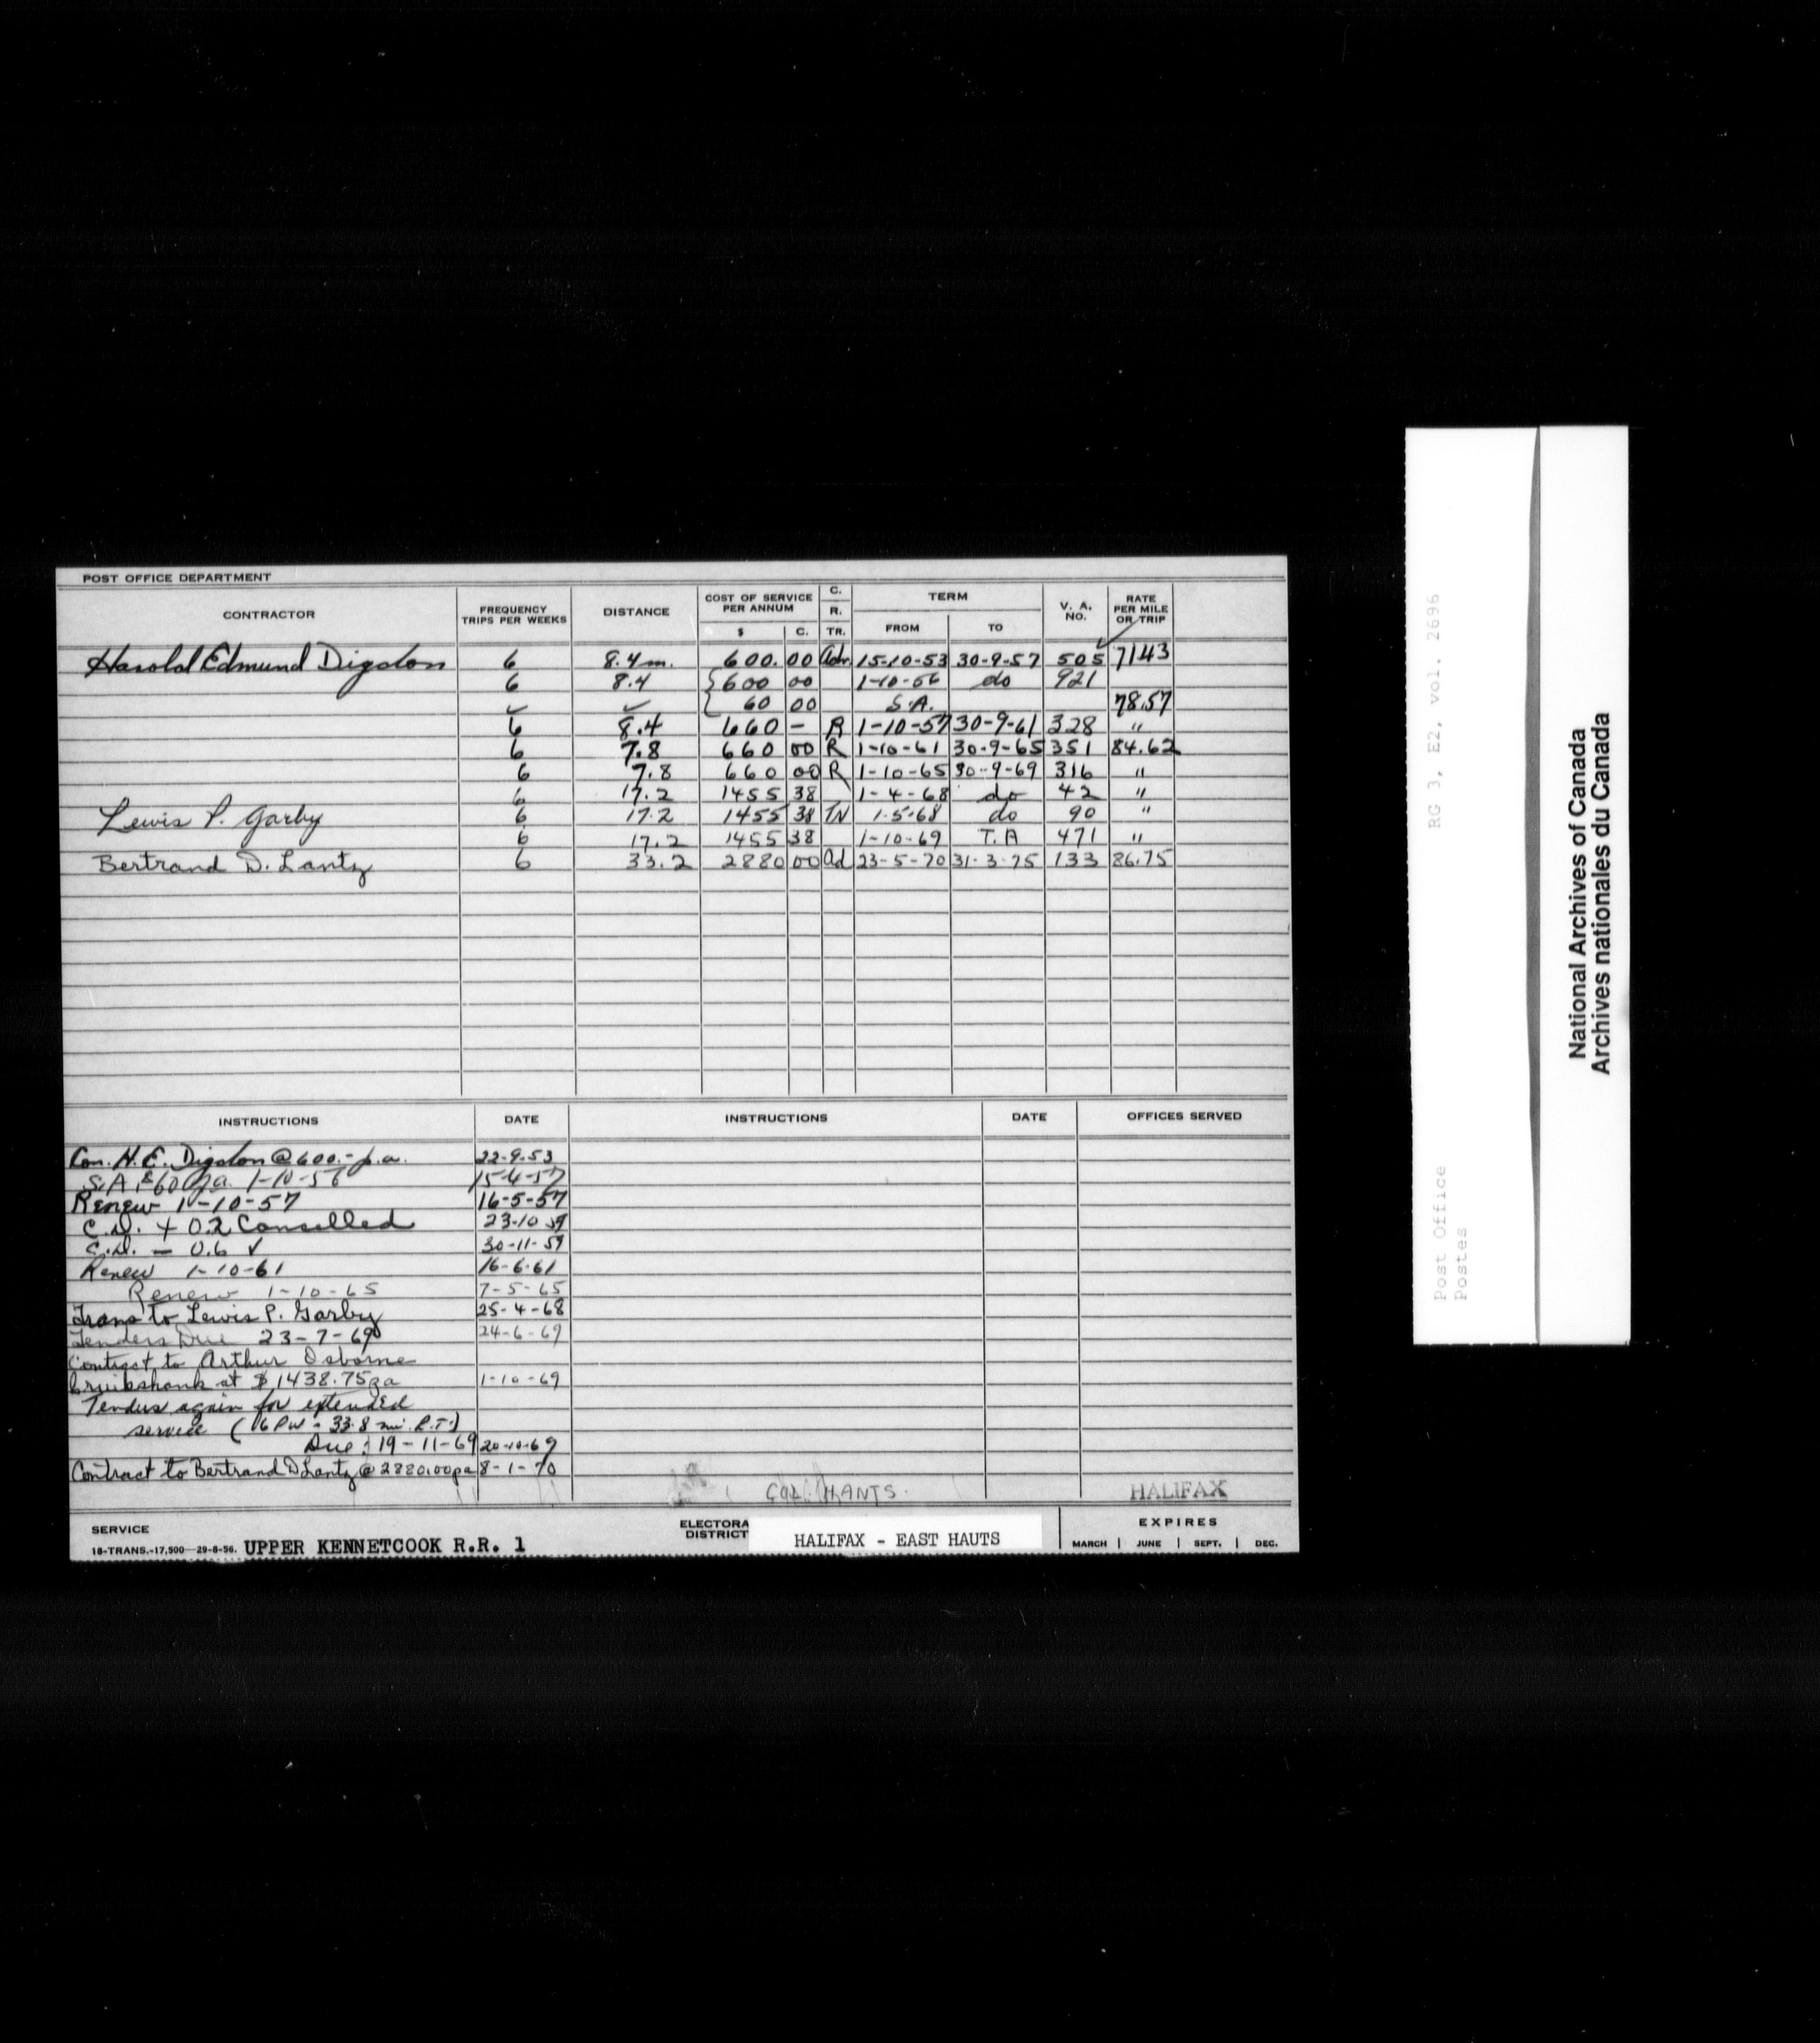 POST OFFICE DEPARTMENT
CONTRACTOR FREQUENCY TRIPS PER WEEKS DISTANCE COST OF SERVICE PER ANNUM $ C. C. R. TR. TERM FROM TO V. A. NO. RATE PER MILE OR TRIP
Harold Edmund Digdon 6 8.4 m. 600. 00 Adv. 15-10-53 30-9-57 505 71.43
6 8.4 600 00 1-10-56 do 921
✓ ✓ 60 00 S.A. 78.57
6 8.4 660 – R 1-10-57 30-9-61 328 "
6 7.8 660 00 R 1-10-61 30-9-65 351 84.62
6 7.8 660 00 R 1-10-65 30-9-69 316 "
6 17.2 1455 38 1-4-68 do 42 "
Lewis P. Garby 6 17.2 1455 38 TN 1-5-68 do 90 "
6 17.2 1455 38 1-10-69 T.A 471 "
Bertrand D. Lantz 6 33.2 2880 00 Ad 23-5-70 31-3-75 133 86.75
INSTRUCTIONS DATE INSTRUCTIONS DATE OFFICES SERVED
Con. H. E. Digdon @ 600.- p.a. 22-9-53
S.A. $60 p.a. 1-10-56 15-4-57
Renew 1-10-57 16-5-57
C.D. + 0.2 Cancelled 23-10-59
C.D. – 0.6 ✓ 30-11-59
Renew 1-10-61 16-6-61
Renew 1-10-65 7-5-65
Trans to Lewis P. Garby 25-4-68
Tenders Due 23-7-69 24-6-69
Contract to Arthur Osborne
Cruikshank at $1438.75 pa 1-10-69
Tenders again for extended
service ( 6 PW - 33.8 mi. R.T.)
Due: 19-11-69 20-10-69
Contract to Bertrand D Lantz @ 2880.00 pa 8-1-70
COL. HANTS. HALIFAX
SERVICE
18-TRANS.-17,500—29-8-56. UPPER KENNETCOOK R.R. 1
ELECTORA DISTRICT HALIFAX - EAST HAUTS
EXPIRES
MARCH | JUNE | SEPT. | DEC.
RG 3, E2, vol. 2696
Post Office
Postes
National Archives of Canada
Archives nationales du Canada